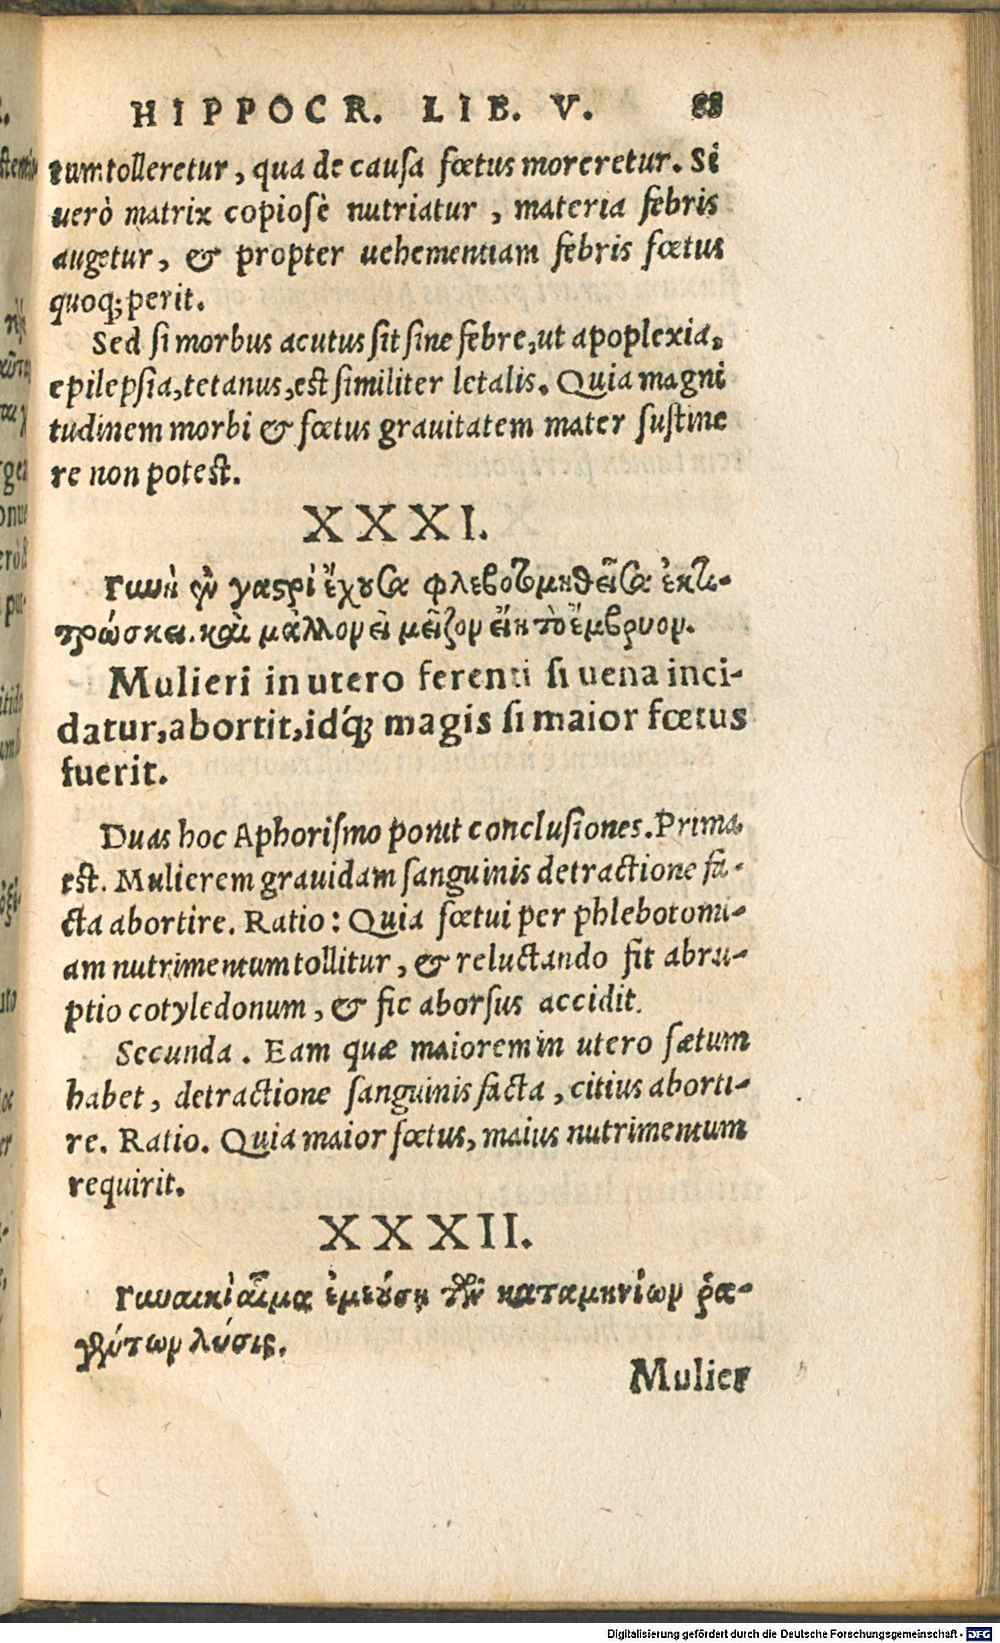 HIPPOCR. LIB. V. 88
tum tolleretur, qua de causa fœtus moreretur. Si
uerò matrix copiosè nutriatur, materia febris
augetur, & propter uehementiam febris fœtus
quoq; perit.
Sed si morbus acutus sit sine febre, ut apoplexia,
epilepsia, tetanus, est similiter letalis. Quia magni
tudinem morbi & fœtus grauitatem mater sustine
re non potest.
XXXI.
Γυνὴ ἐν γαστρὶ ἔχουσα φλεβοτομηθεῖσα ἐκτι-
τρώσκει. καὶ μᾶλλον εἰ μεῖζον εἴη τὸ ἔμβρυον.
Mulieri in utero ferenti si uena inci-
datur, abortit, idq́; magis si maior fœtus
fuerit.
Duas hoc Aphorismo ponit conclusiones. Prima
est. Mulierem grauidam sanguinis detractione fa-
cta abortire. Ratio: Quia fœtui per phlebotomi-
am nutrimentum tollitur, & reluctando fit abru-
ptio cotyledonum, & sic aborsus accidit.
Secunda. Eam quæ maiorem in utero fætum
habet, detractione sanguinis facta, citius aborti-
re. Ratio. Quia maior fœtus, maius nutrimentum
requirit.
XXXII.
Γυναικὶ αἷμα ἐμεύσῃ τῶν καταμηνίων ῥα-
γέντων λύσις.
Mulier
Digitalisierung gefördert durch die Deutsche Forschungsgemeinschaft - DFG